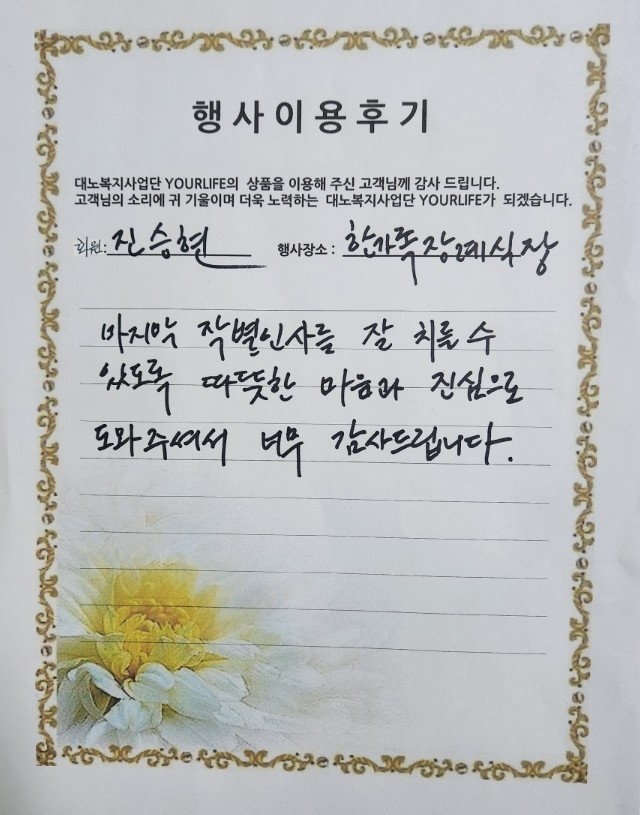 행사이용후기
대노복지사업단 YOURLIFE의 상품을 이용해 주신 고객님께 감사 드립니다.
고객님의 소리에 귀 기울이며 더욱 노력하는 대노복지사업단 YOURLIFE가 되겠습니다.
회원: 진승현 행사장소 : 한가족장례식장
마지막 작별인사를 잘 치를 수
있도록 따뜻한 마음과 진심으로
도와주셔서 너무 감사드립니다.